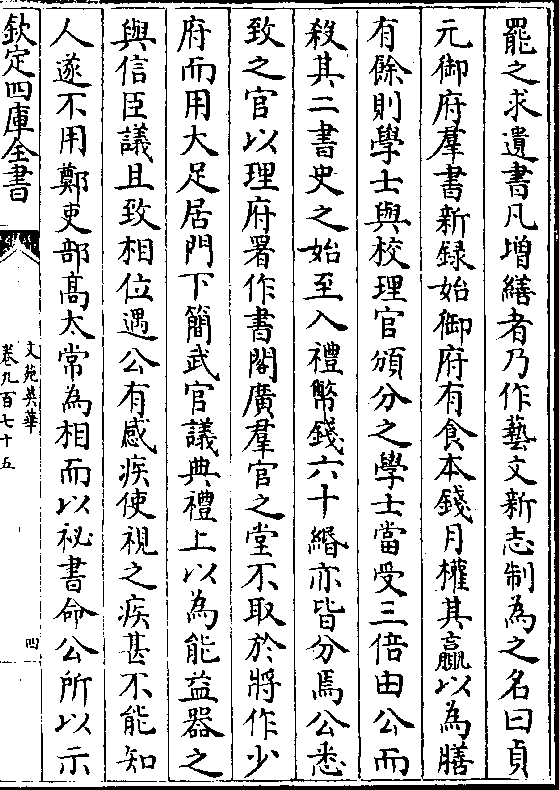 罷之求遺書凡增繕者乃作藝文新志制為之名曰貞
元御府羣書新録始御府有食本錢月權其贏以為膳
有餘則學士與校理官頒分之學士當受三倍由公而
殺其二書史之始至入禮幣錢六十緡亦皆分焉公悉
致之官以理府署作書閣廣羣官之堂不取於將作少
府而用大足居門下簡武官議典禮上以為能益器之
與信臣議且致相位遇公有感疾使視之疾甚不能知
人遂不用鄭吏部髙太常為相而以祕書命公所以示
欽定四庫全書
文苑英華
卷九百七十五
四